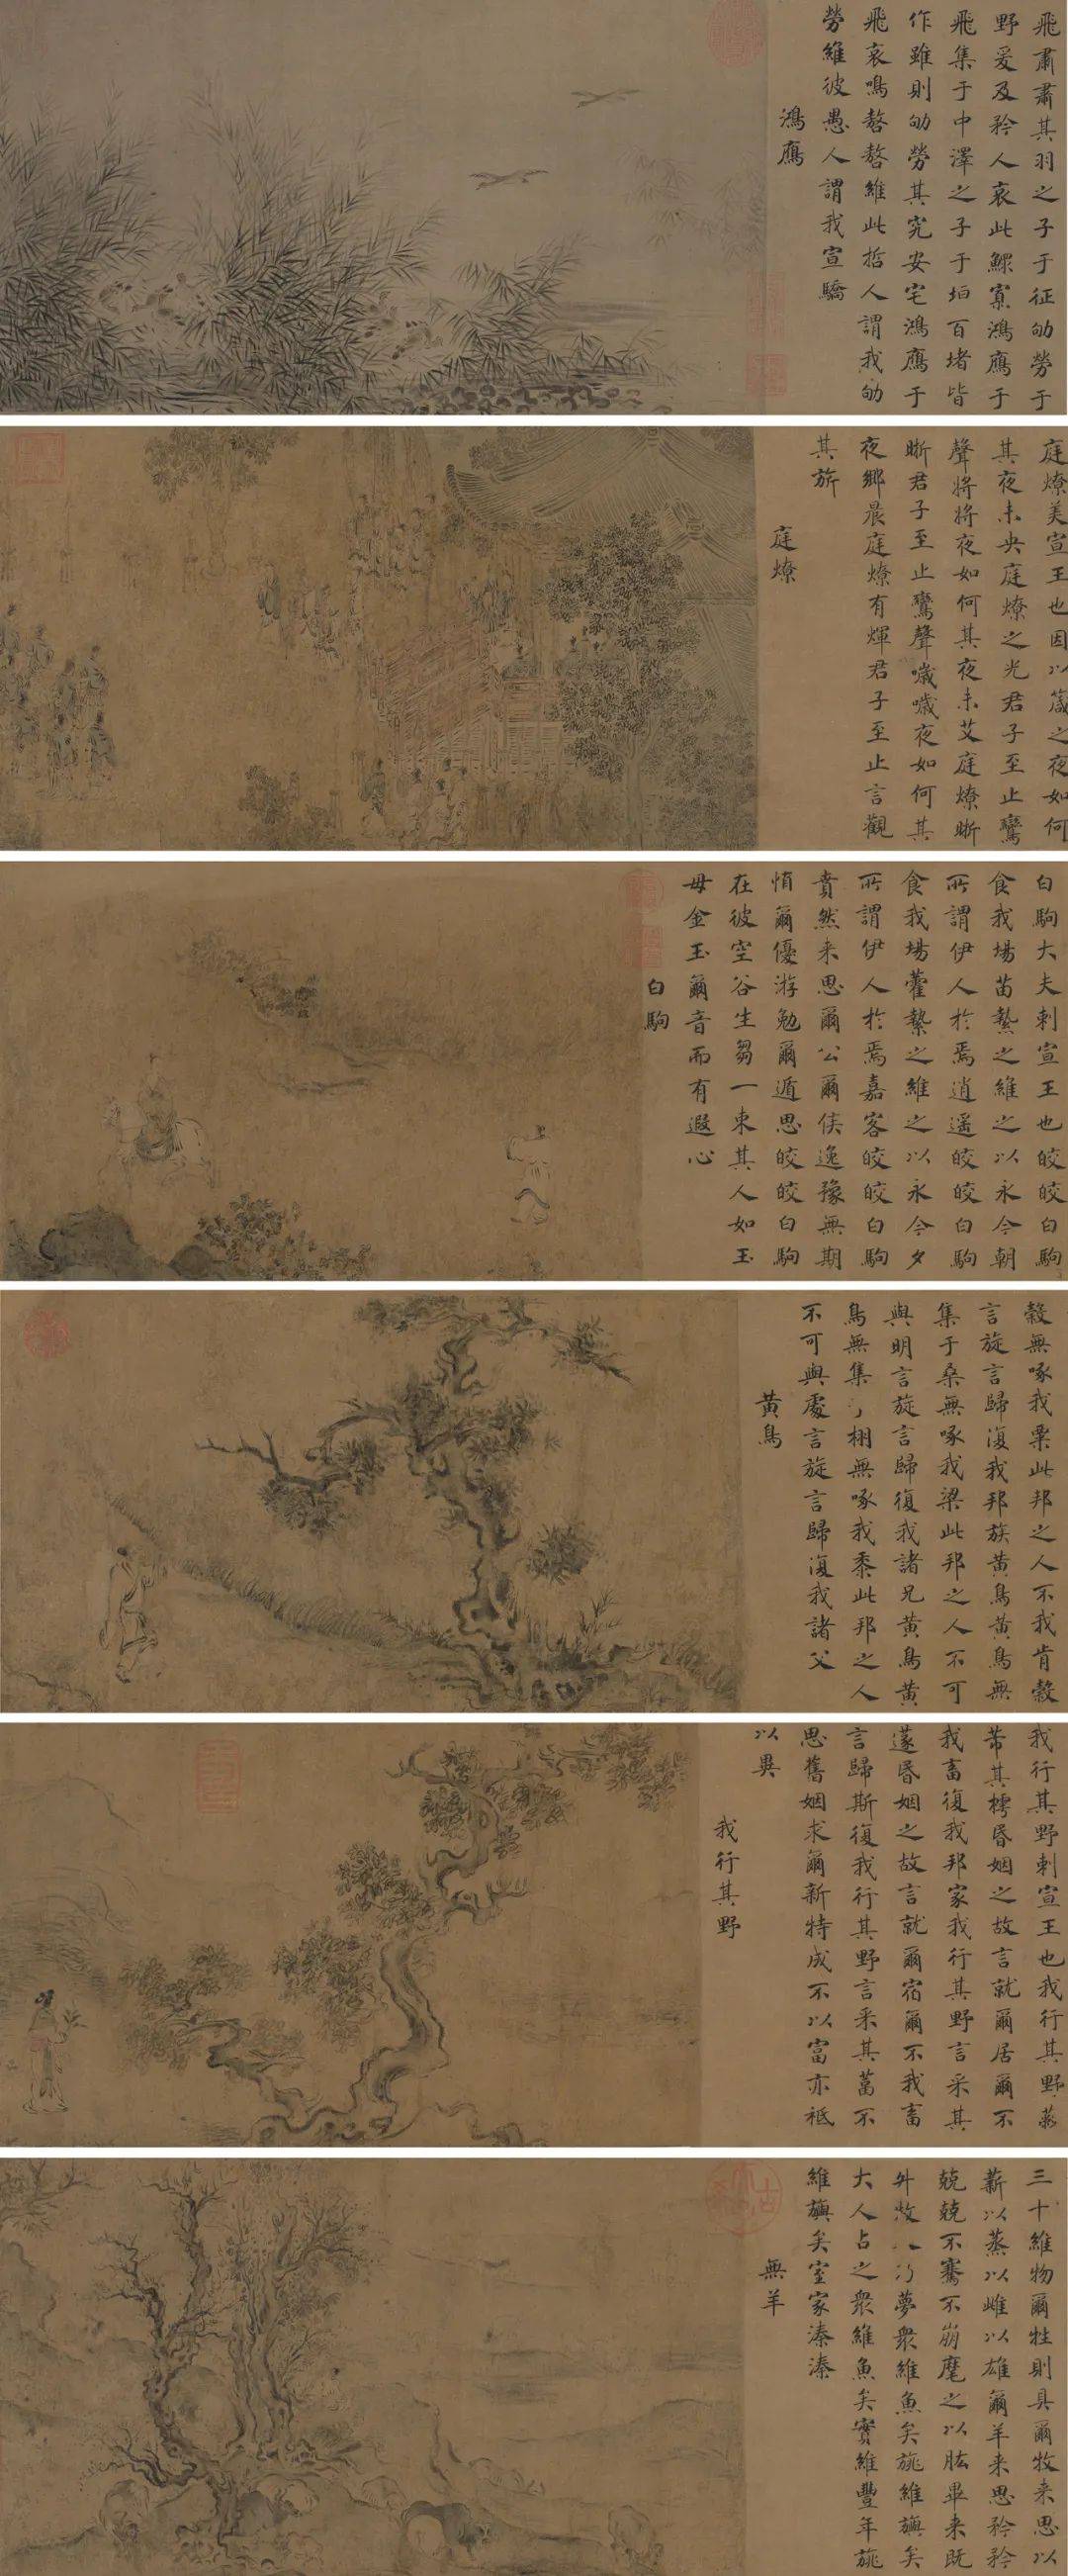 飛肅肅其羽之子于征劬勞于
野爰及矜人哀此鰥寡鴻鴈于
飛集于中澤之子于垣百堵皆
作雖則劬勞其究安宅鴻鴈于
飛哀鳴嗸嗸維此哲人謂我劬
勞維彼愚人謂我宣驕
鴻鴈
庭燎美宣王也因以箴之夜如何
其夜未央庭燎之光君子至止鸞
聲將將夜如何其夜未艾庭燎晰
晰君子至止鸞聲噦噦夜如何其
夜鄉晨庭燎有煇君子至止言觀
其旂
庭燎
白駒大夫刺宣王也皎皎白駒
食我場苗縶之維之以永今朝
所謂伊人於焉逍遥皎皎白駒
食我場藿縶之維之以永今夕
所謂伊人於焉嘉客皎皎白駒
賁然来思爾公爾侯逸豫無期
慎爾優游勉爾遁思皎皎白駒
在彼空谷生芻一束其人如玉
毋金玉爾音而有遐心
白駒
穀無啄我粟此邦之人不我肯穀
言旋言歸復我邦族黄鳥黄鳥無
集于桑無啄我梁此邦之人不可
與明言旋言歸復我諸兄黄鳥黄
鳥無集栩無啄我黍此邦之人
不可與處言旋言歸復我諸父
黄鳥
我行其野刺宣王也我行其野蔽
芾其樗昏姻之故言就爾居爾不
我畜復我邦家我行其野言采其
蓫昏姻之故言就爾宿爾不我畜
言歸斯復我行其野言采其葍不
思舊姻求爾新特成不以富亦祗
以異
我行其野
三十維物爾牲則具爾牧来思以
薪以蒸以雌以雄爾羊来思矜矜
兢兢不騫不崩麾之以肱畢来既
升牧夢衆維魚矣旐維旟矣
大人占之衆維魚矣實維豐年旐
維旟矣室家溱溱
無羊